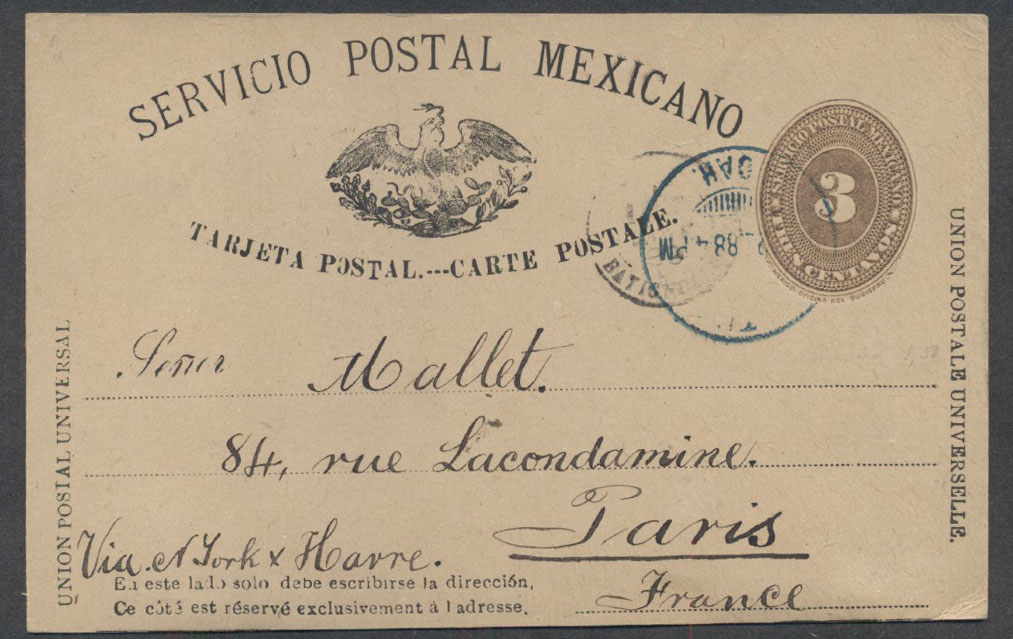 SERVICIO POSTAL MEXICANO
SERVICIO POSTAL MEXICANO
3
TRES CENTAVOS
TARJETA POSTAL.---CARTE POSTALE.
88 4 PM
UNION POSTAL UNIVERSAL
UNION POSTALE UNIVERSELLE.
Señor Mallet.
84, rue Lacondamine.
Paris
Via N York x Havre.
France
En este lado solo debe escribirse la dirección,
Ce côté est réservé exclusivement à l adresse.